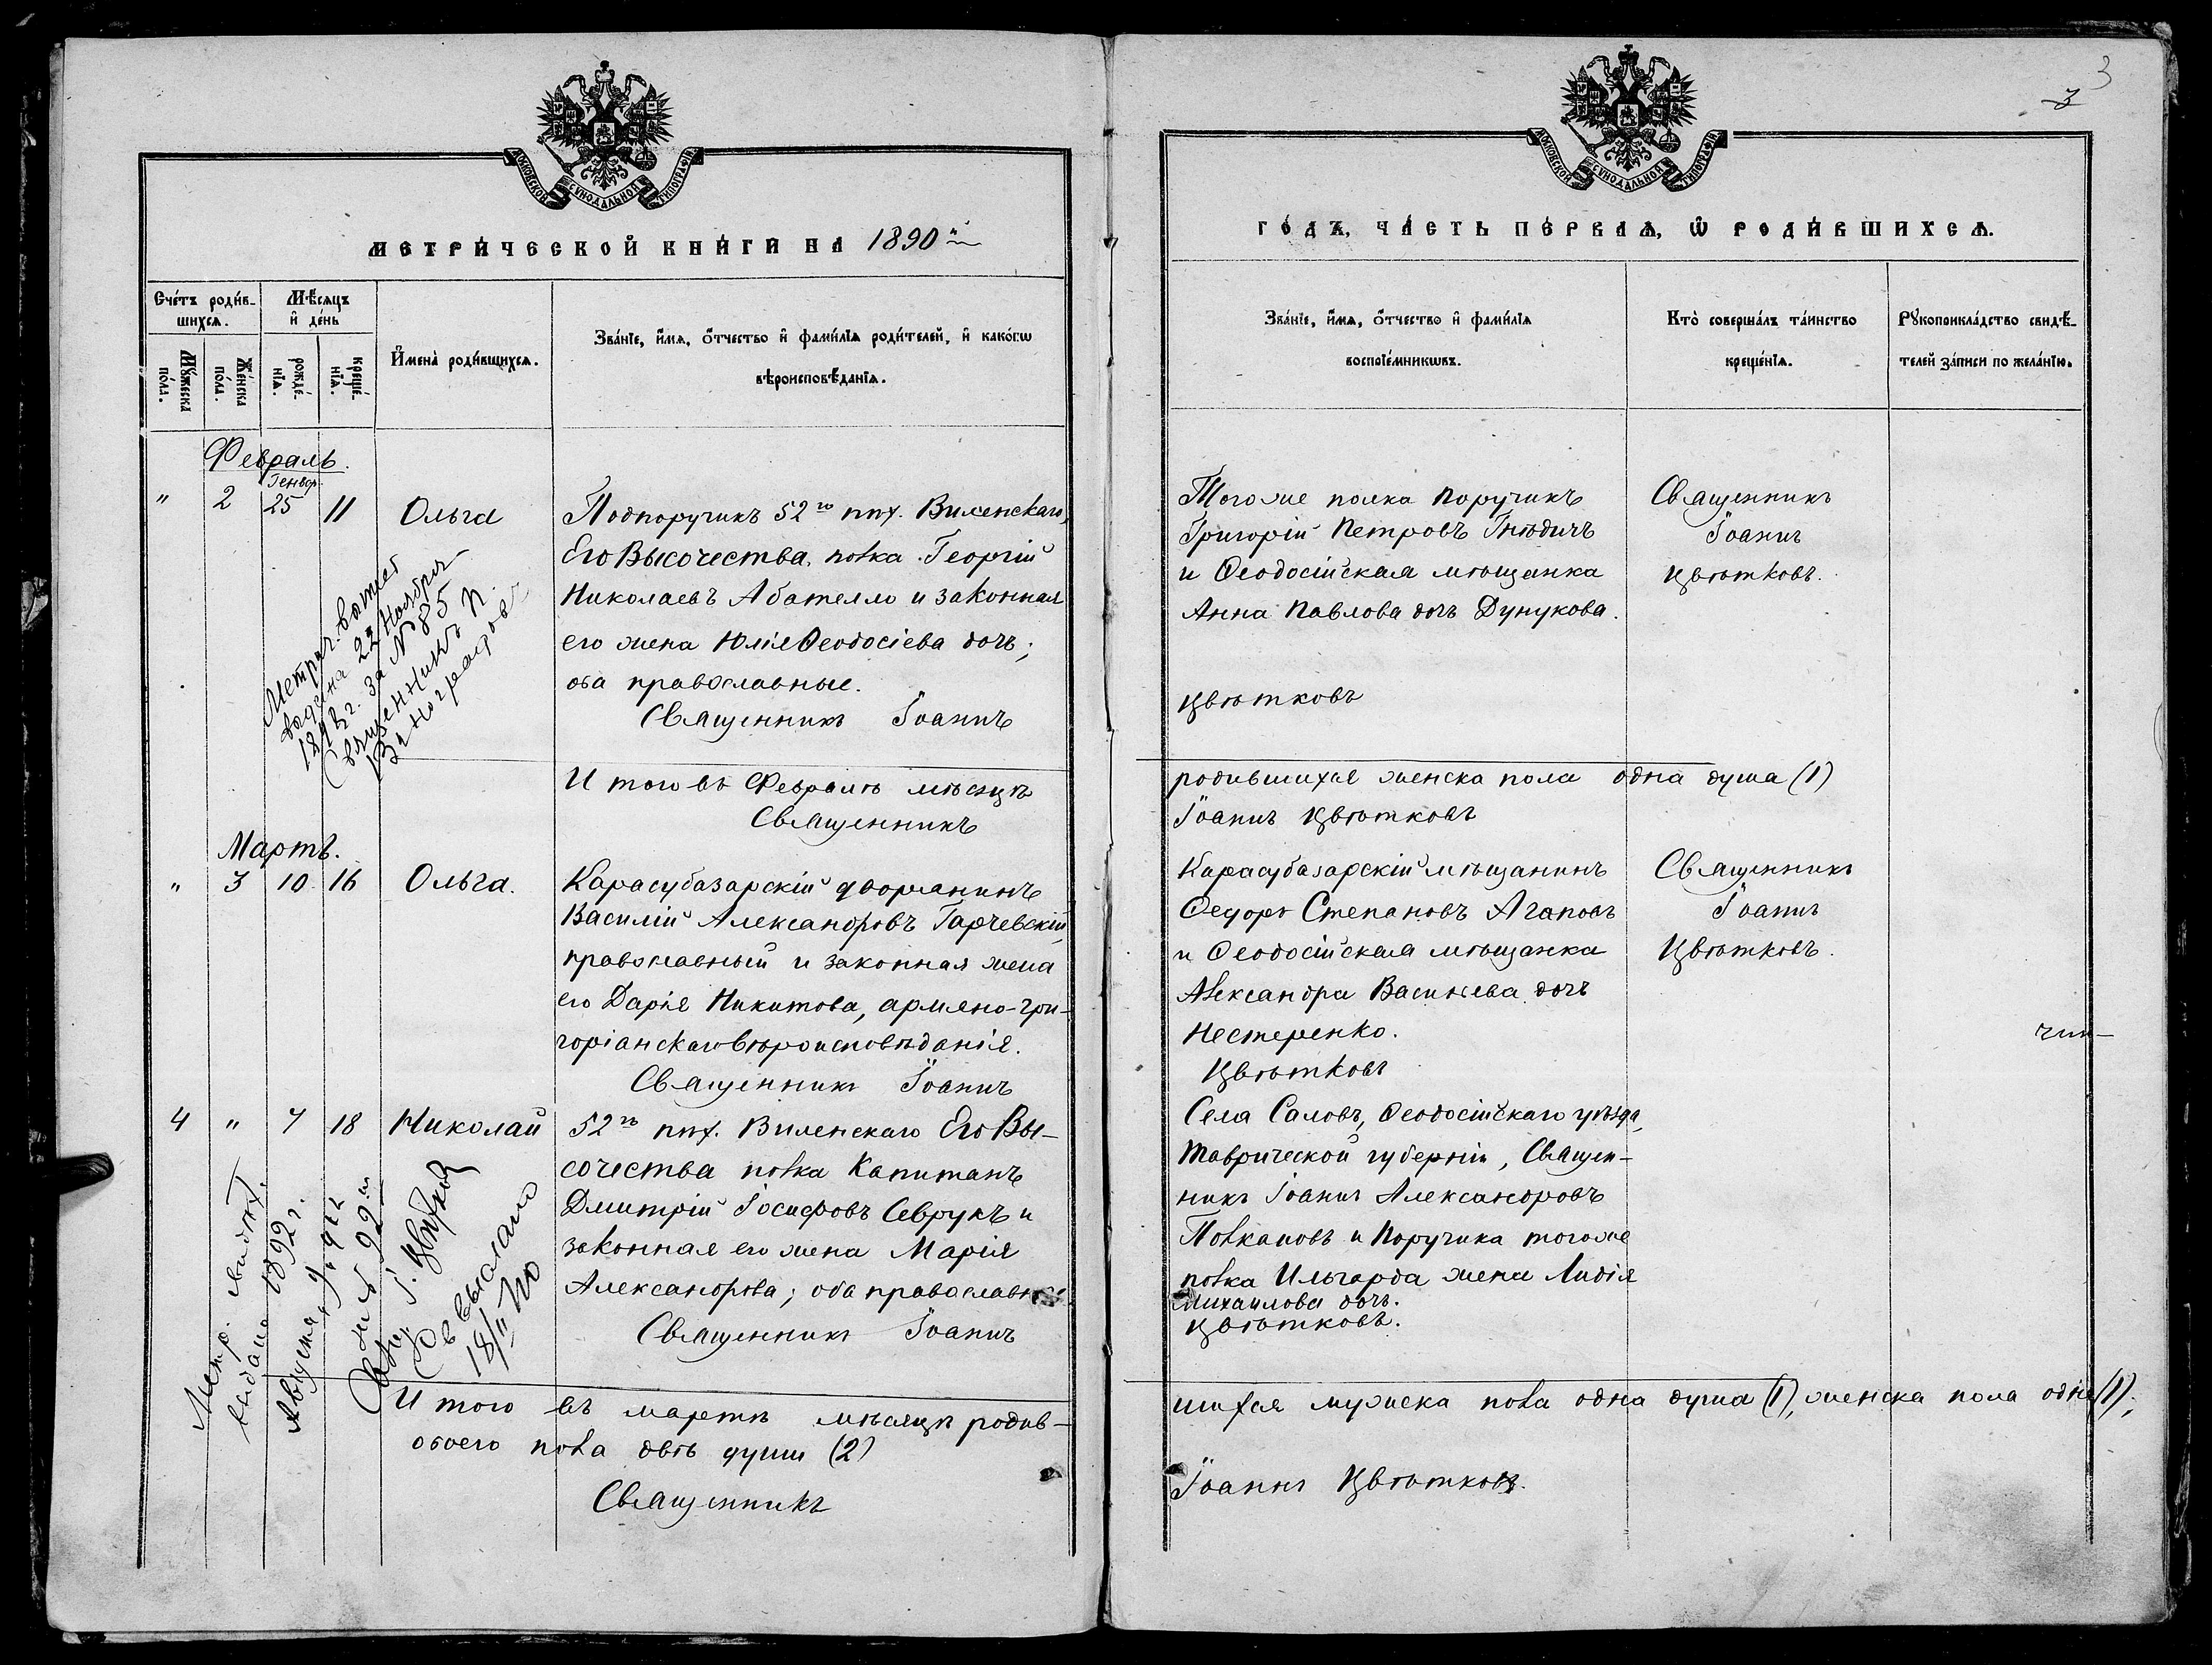 МОСКОВСКОЙ СѴНОДАЛЬНОЙ ТИПОГРАФІИ
МЕТРИЧЕСКОЙ КНИГИ НА 1890 й
Счетъ родив-
шихся.
Мѣсяцъ
и день
Мужеска
пола.
Женска
пола.
рожде-
нія.
креще-
нія.
Имена родившихся.
Званіе, имя, отчество и фамилія родителей, и какогѡ
вѣроисповѣданія.
Февраль.
Генвар.
" 2 25 11 Ольга
Подпоручикъ 52го пѣх. Виленскаго,
Его Высочества, полка Георгій
Николаевъ Абателло и законная
его жена Юлія Ѳеодосіева дочь;
оба православные.
Священникъ Іоаннъ
Метрич.
выдана 22 Ноября
за № 85
Священникъ П.
Виноградовъ
Итого въ Февралѣ мѣсяцѣ
Священникъ
Мартъ.
" 3 10 16 Ольга.
Карасубазарскій дворянинъ
Василій Александровъ Гарчевскій,
православный и законная жена
его Дарія Никитова, армяно-гри-
горіанскаго вѣроисповѣданія.
Священникъ Іоаннъ
4 " 7 18 Николай
52го пѣх. Виленскаго Его Вы-
сочества полка Капитанъ
Дмитрій Іосифовъ Севрукъ и
законная его жена Марія
Александрова; оба православные
Священникъ Іоаннъ
Метр.
выдано 1892 г.
Августа
за № 92
Свящ. І. Цвѣтковъ
Итого въ мартѣ мѣсяцѣ родив-
обоего пола двѣ души (2)
Священникъ
3
3
МОСКОВСКОЙ СѴНОДАЛЬНОЙ ТИПОГРАФІИ
ГОДЪ, ЧАСТЬ ПЕРВАЯ, Ѡ РОДИВШИХСЯ.
Званіе, имя, отчество и фамилія
воспріемниковъ.
Кто совершалъ таинство
крещенія.
Рукоприкладство свидѣ-
телей записи по желанію.
Тогоже полка Поручикъ
Григорій Петровъ Гнѣдичъ
и Ѳеодосійская мѣщанка
Анна Павлова дочь Дунукова.
Цвѣтковъ
Священникъ
Іоаннъ
Цвѣтковъ.
родившихся женска пола одна душа (1)
Іоаннъ Цвѣтковъ
Карасубазарскій мѣщанинъ
Ѳедоръ Степановъ Агаповъ
и Ѳеодосійская мѣщанка
Александра Васильева дочь
Нестеренко.
Цвѣтковъ
Священникъ
Іоаннъ
Цвѣтковъ.
чин-
Села Саловъ, Ѳеодосійскаго уѣзда,
Таврической губерніи, Священ-
никъ Іоаннъ Александровъ
Полкановъ и Поручика тогоже
полка Ильгарда жена Лидія
Михаилова дочь.
Цвѣтковъ.
шихся мужеска пола одна душа (1), женска пола одна (1);
Іоаннъ Цвѣтковъ.